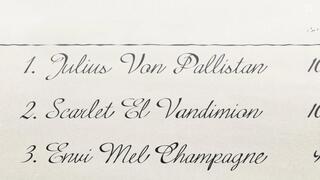 1. Julius Van Pallistan 10
2. Scarlet El Vandimion 10
3. Envi Mel Champagne